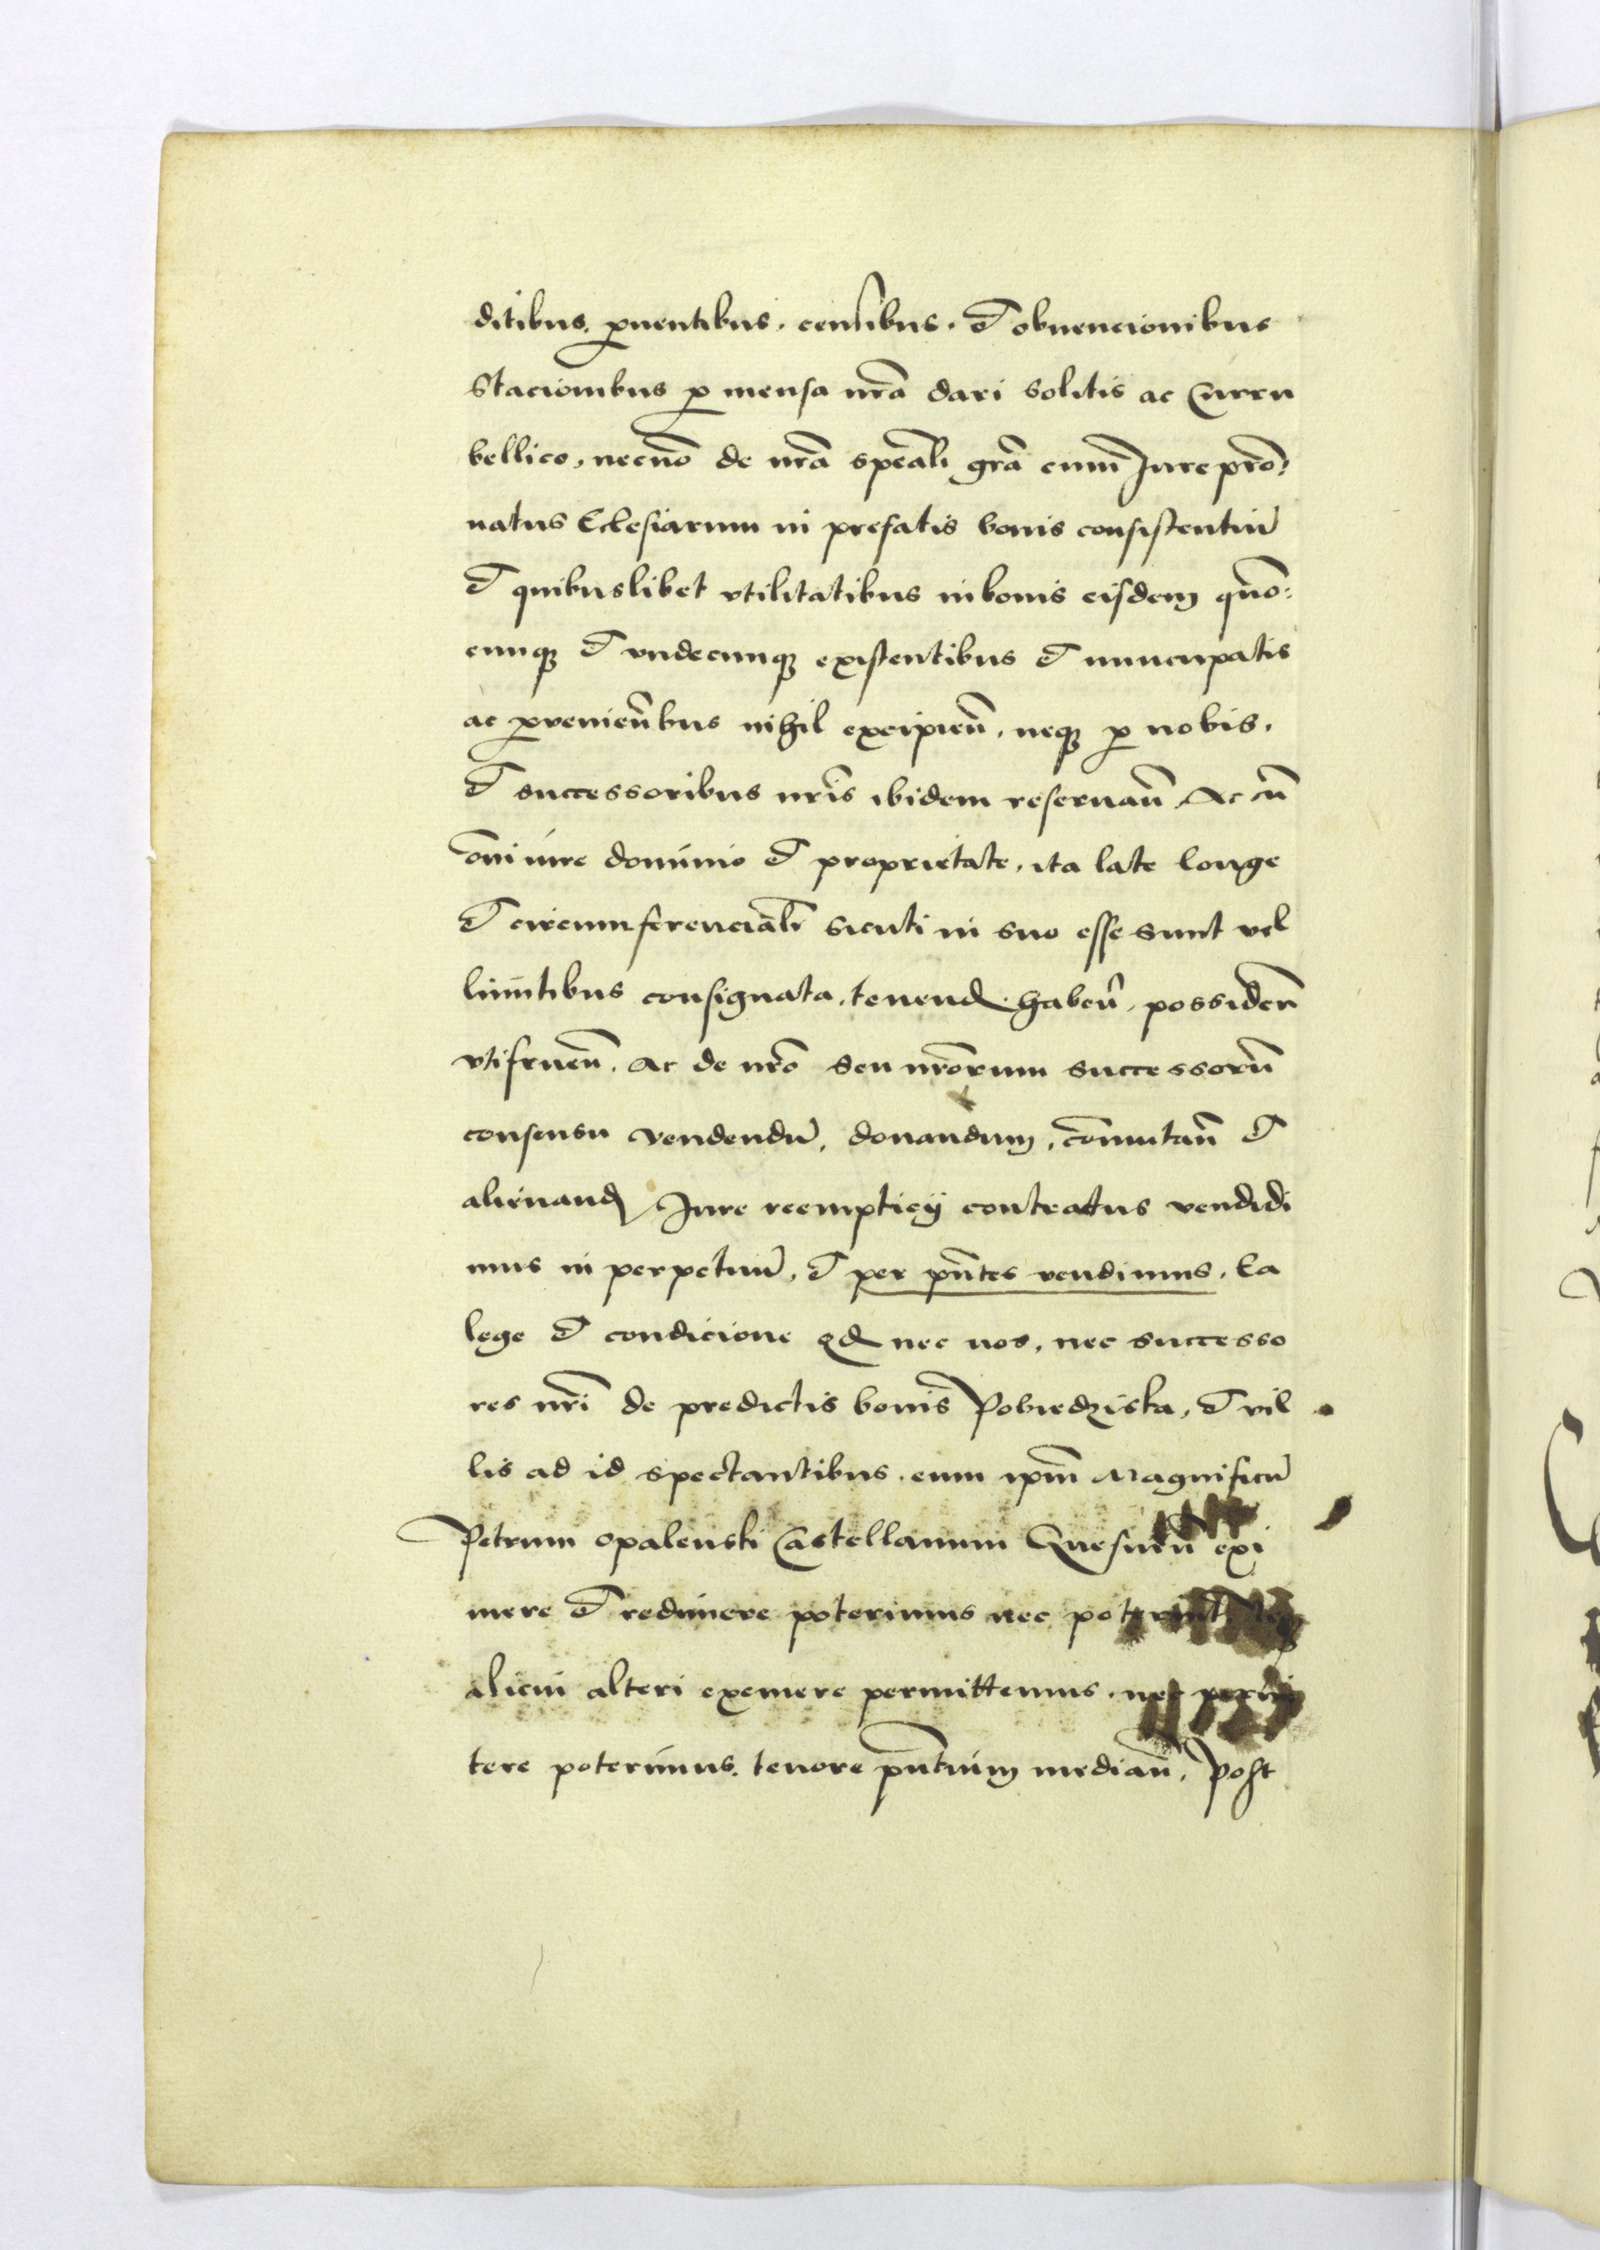 ditibus, ꝓuentibus, censibus, et obuencionibus
Stacionibus ꝓ mensa nr̃a dari solitis ac Curru
bellico, necnõ de nr̃a speãli gr̃a cum Jure pr̃o-
natus Eclesiarum in prefatis bonis consistentiũ
et quibuslibet vtilitatibus in bonis eisdem quõ-
cunqꝫ et vndecunqꝫ existentibus et nuncupatis
ac ꝓvenien̄bus nihil excipien̄, neqꝫ ꝓ nobis,
et successoribus nr̃is ibidem reseruan̄ Ac cũ
om̃i iure dominio et proprietate, ita late longe
et circumferenciali͂ sicuti in suo esse sunt vel
limitibus consignata, tenend̃. haben̄, possiden̄
vtifruen̄. Ac de nr̃o seu nr̃orum successorũ
consensu vendendũ, donandum, cõmutan̄ et
alienand̃ Jure reempticij contractus vendidi
mus in perpetuũ, et per pñtes vendimus, Ea
lege et condicione qd̃ nec nos, nec successo
res nr̃i de predictis bonis Pobiedziska, et vil
lis ad id spectantibus, eum ip̃m Magnificũ
Petrum Opalenski Castellanum Gnesnen̄ exi
mere et redimere poterimus nec poterint
alicui alteri exemere permittemus, nec permit
tere poterimus, tenore pñtium median̄, Post